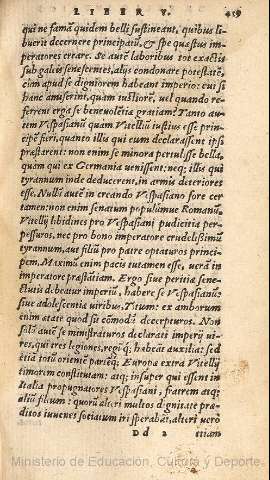 LIBER V. 419
qui ne famã quidem belli sustineant, quibus li-
buerit decernere principatũ, & spe quæstus im-
peratores creare. Se autẽ laboribus tot exactis
sub galeis senescentes, alijs condonare potestatẽ,
cùm apud se digniorem habeant imperio: cui si
hanc amiserint, quam iustiorẽ, uel quando re-
ferent erga se beneuolẽtiæ gratiam? Tanto au-
tem Vespasianũ quàm Vitelliũ iustius esse prin-
cipẽ fore, quanto illis qui eum declarassent ipsi
præstarent: non enim se minora pertulisse bella,
quàm qui ex Germania uenissent; neq; illis qui
tyrannum inde deducerent, in armis deteriores
esse. Nulli autẽ in creando Vespasiano fore cer-
tamen: non enim senatum populumue Romanũ,
Vitellij libidines pro Vespasiani pudicitia per-
pessuros, nec pro bono imperatore crudelissimũ
tyrannum, aut filiũ pro patre optaturos princi-
pem. Maximũ enim pacis tutamen esse, uerã in
imperatore præstãtiam. Ergo siue peritia sene-
ctutis debeatur imperiũ, habere se Vespasianũ:
siue adolescentia uiribus, Titum: ex amborum
enim ætate quod sit cõmodũ decerpturos. Non
solũ autẽ se ministraturos declarati imperij ui-
res, qui tres legiones, regũq; habeãt auxilia: sed
etiã totũ orientẽ
Europæ extra Vitellij
timorem constitutam: atq; insuper qui essent in
Italia propugnatores Vespasiani, fratrem atq;
aliũ filium: quorũ alteri multos dignitate præ-
ditos iuuenes sociatum iri sperabãt, alteri uerò
D d 2 etiam
Ministerio de Educación, Cultura y Deporte